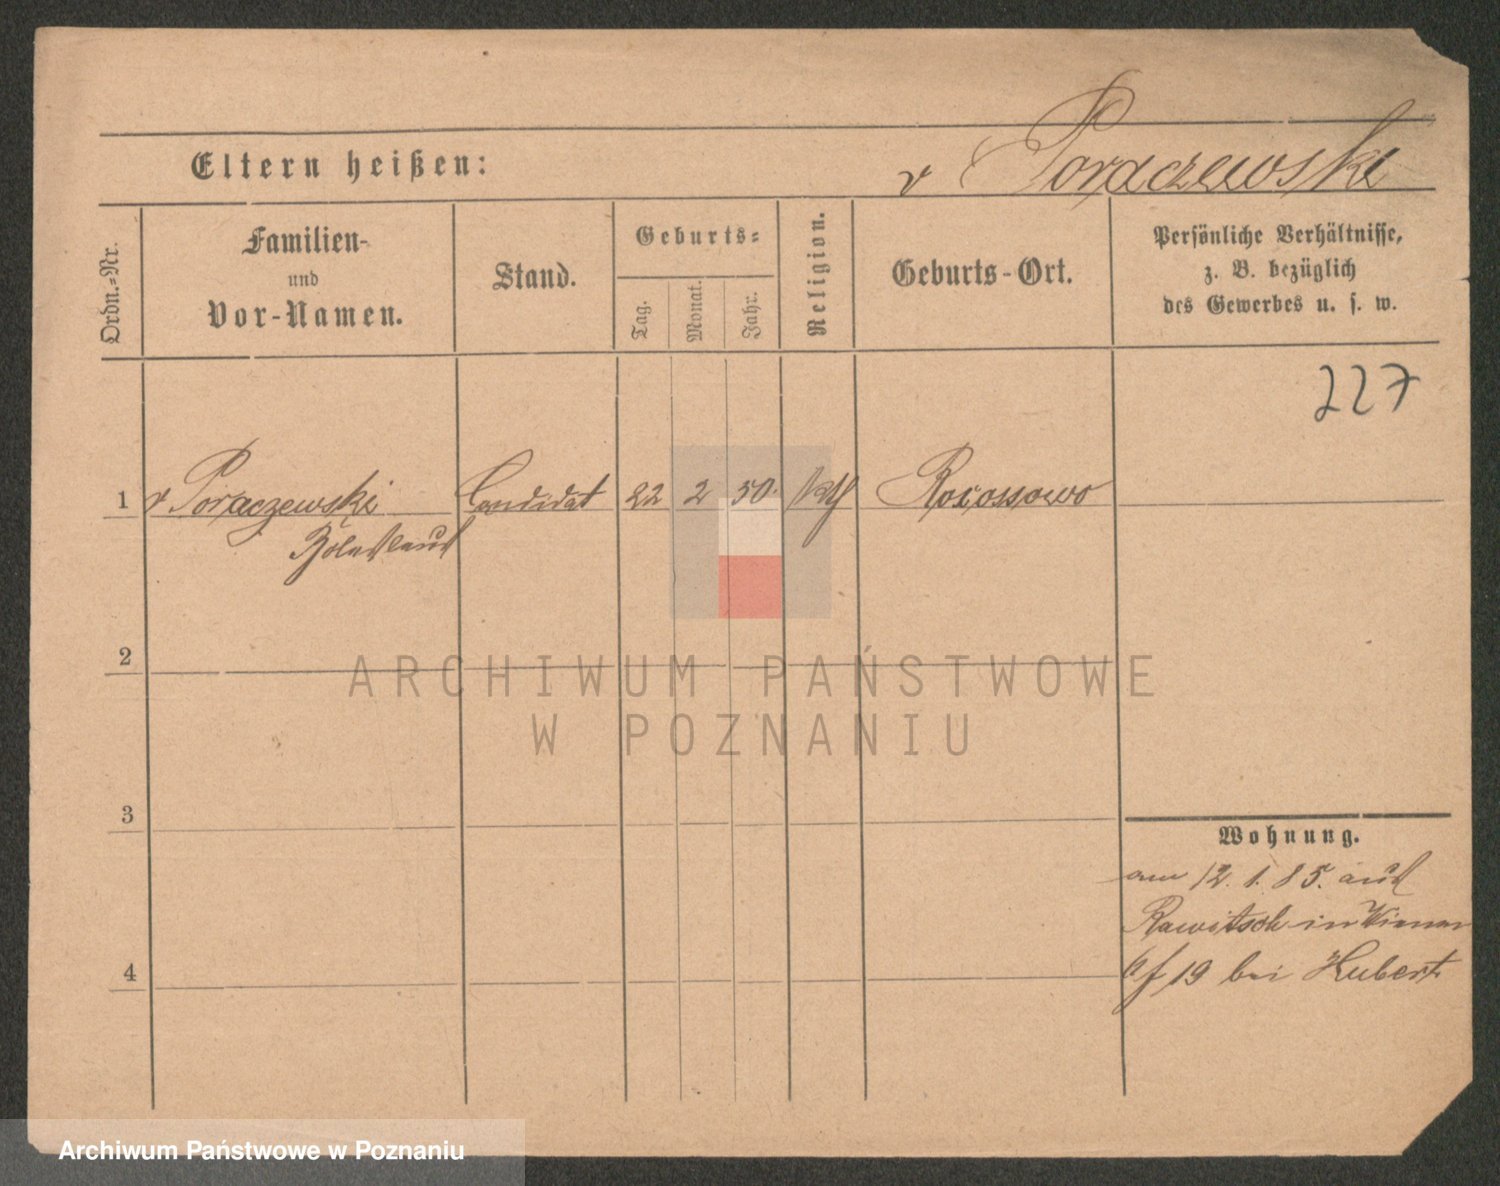 Eltern heißen:
v Poraczewski
Ordn.-Nr.
Familien-
und
Vor-Namen.
Stand.
Geburts-
Tag.
Monat.
Jahr.
Religion.
Geburts-Ort.
Persönliche Verhältnisse,
z. B. bezüglich
des Gewerbes u. s. w.
227
1 v Poraczewski Candidat 22 2 50. kth Rocossowo
Boleslaus
ARCHIWUM PAŃSTWOWE
W POZNANIU
2
3
4
Wohnung.
am 12.1.85. aus
Rawitsch in Wiener
19 bei Hubert
Archiwum Państwowe w Poznaniu